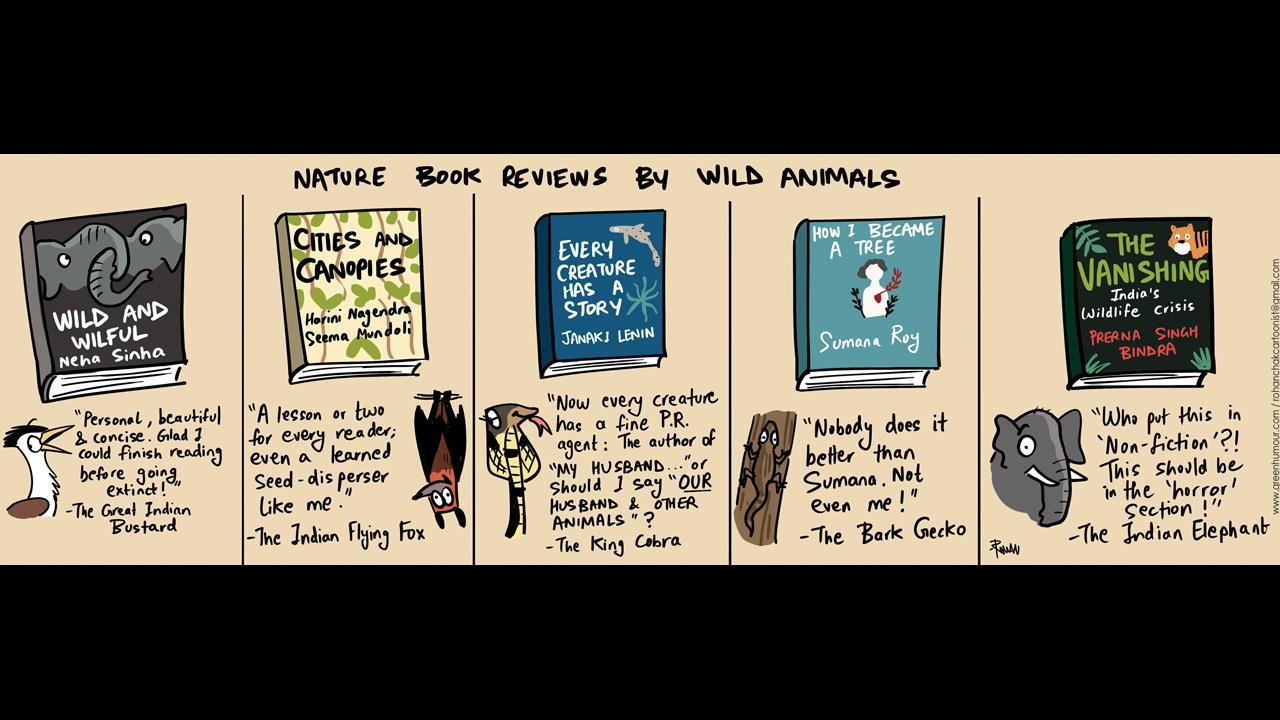 NATURE BOOK REVIEWS BY WILD ANIMALS
WILD AND
WILFUL
Neha Sinha
"Personal, beautiful
& concise. Glad I
could finish reading
before going
extinct!"
-The Great Indian
Bustard
CITIES AND
CANOPIES
Harini Nagendra
Seema Mundoli
"A lesson or two
for every reader;
even a learned
Seed-disperser
like me."
-The Indian Flying Fox
EVERY
CREATURE
HAS A
STORY
JANAKI LENIN
"Now every creature
has a fine P.R.
agent: The author of
"MY HUSBAND..." or
should I say "OUR
HUSBAND & OTHER
ANIMALS"?
-The King Cobra
HOW I BECAME
A TREE
Sumana Roy
"Nobody does it
better than
Sumana. Not
even me!"
-The Bark Gecko
THE
VANISHING
India's
Wildlife crisis
PRERNA SINGH
BINDRA
"Who put this in
'Non-fiction'?!
This should be
in the 'horror'
section!"
-The Indian Elephant
www.greenhumour.com/rohanchakcartoonist@gmail.com